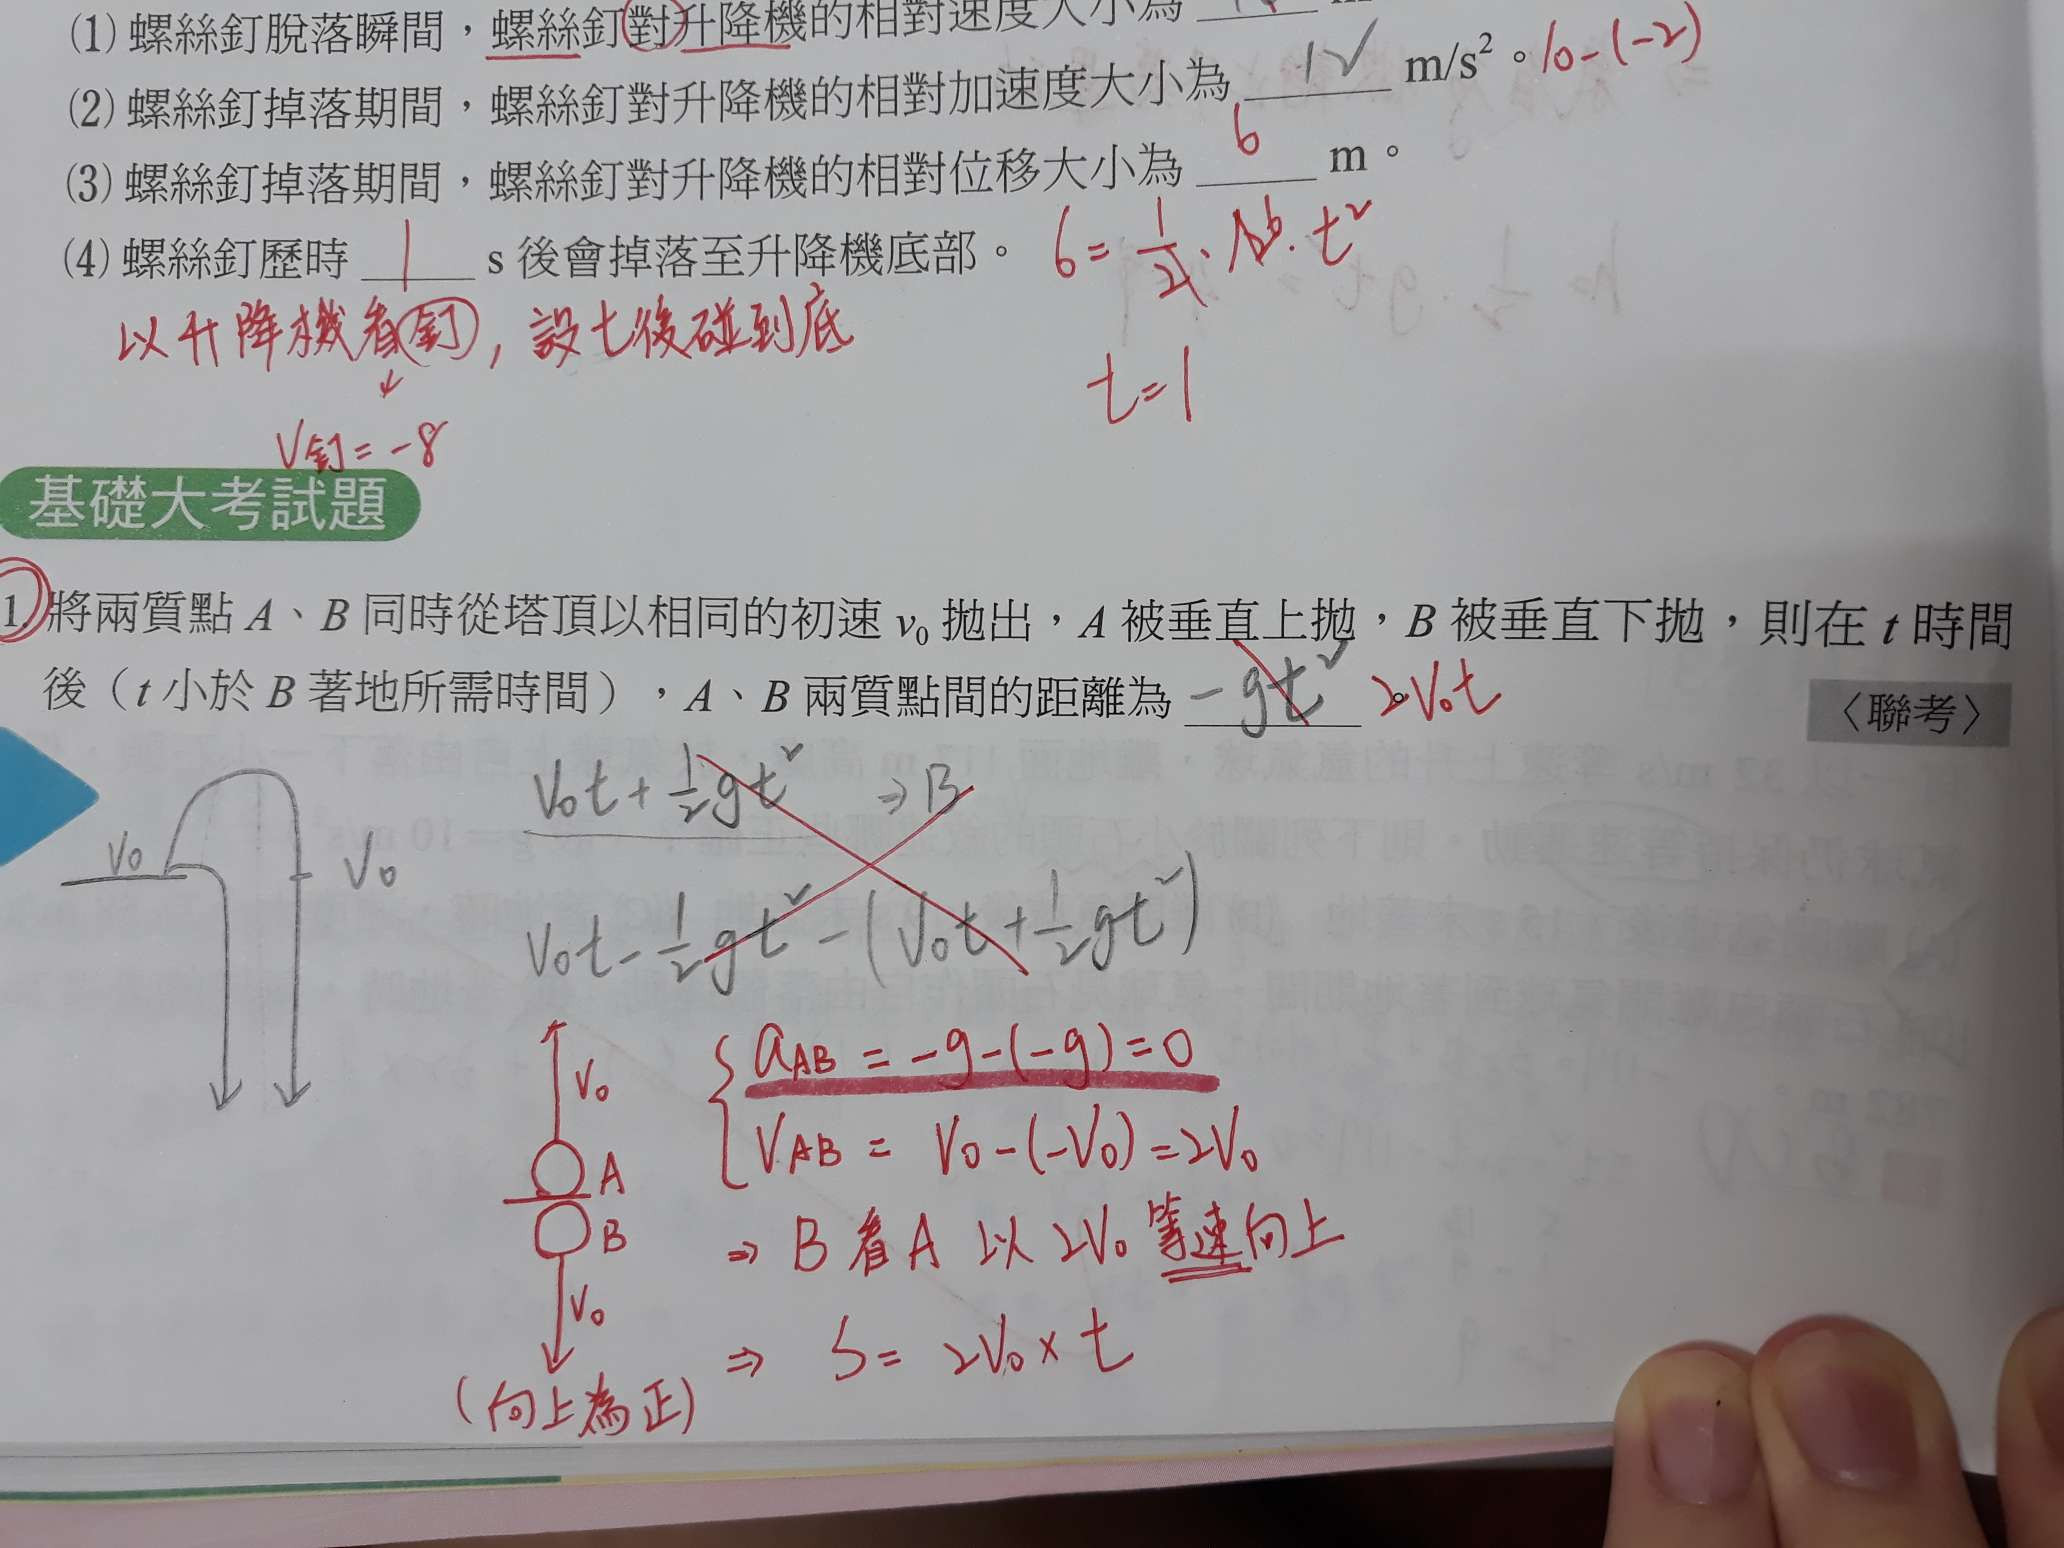 (1) 螺絲釘脫落瞬間，螺絲釘對升降機的相對速度大小為
(2) 螺絲釘掉落期間，螺絲釘對升降機的相對加速度大小為 12 m/s²。10-(-2)
(3) 螺絲釘掉落期間，螺絲釘對升降機的相對位移大小為 6 m。
(4) 螺絲釘歷時 1 s 後會掉落至升降機底部。
6 = 1/2 · 12 6 · t²
t = 1
以升降機看釘，設t後碰到底
V釘 = -8
基礎大考試題
1. 將兩質點 A、B 同時從塔頂以相同的初速 v₀ 拋出，A 被垂直上拋，B 被垂直下拋，則在 t 時間
後（t 小於 B 著地所需時間），A、B 兩質點間的距離為 -gt² 。 2V₀t
〈聯考〉
V₀t + 1/2 gt² ⇒ B
V₀ V₀
V₀t - 1/2 gt² - (V₀t + 1/2 gt²)
V₀
A
B
V₀
(向上為正)
aAB = -g-(-g) = 0
VAB = V₀-(-V₀) = 2V₀
⇒ B 看 A 以 2V₀ 等速向上
⇒ S = 2V₀ × t